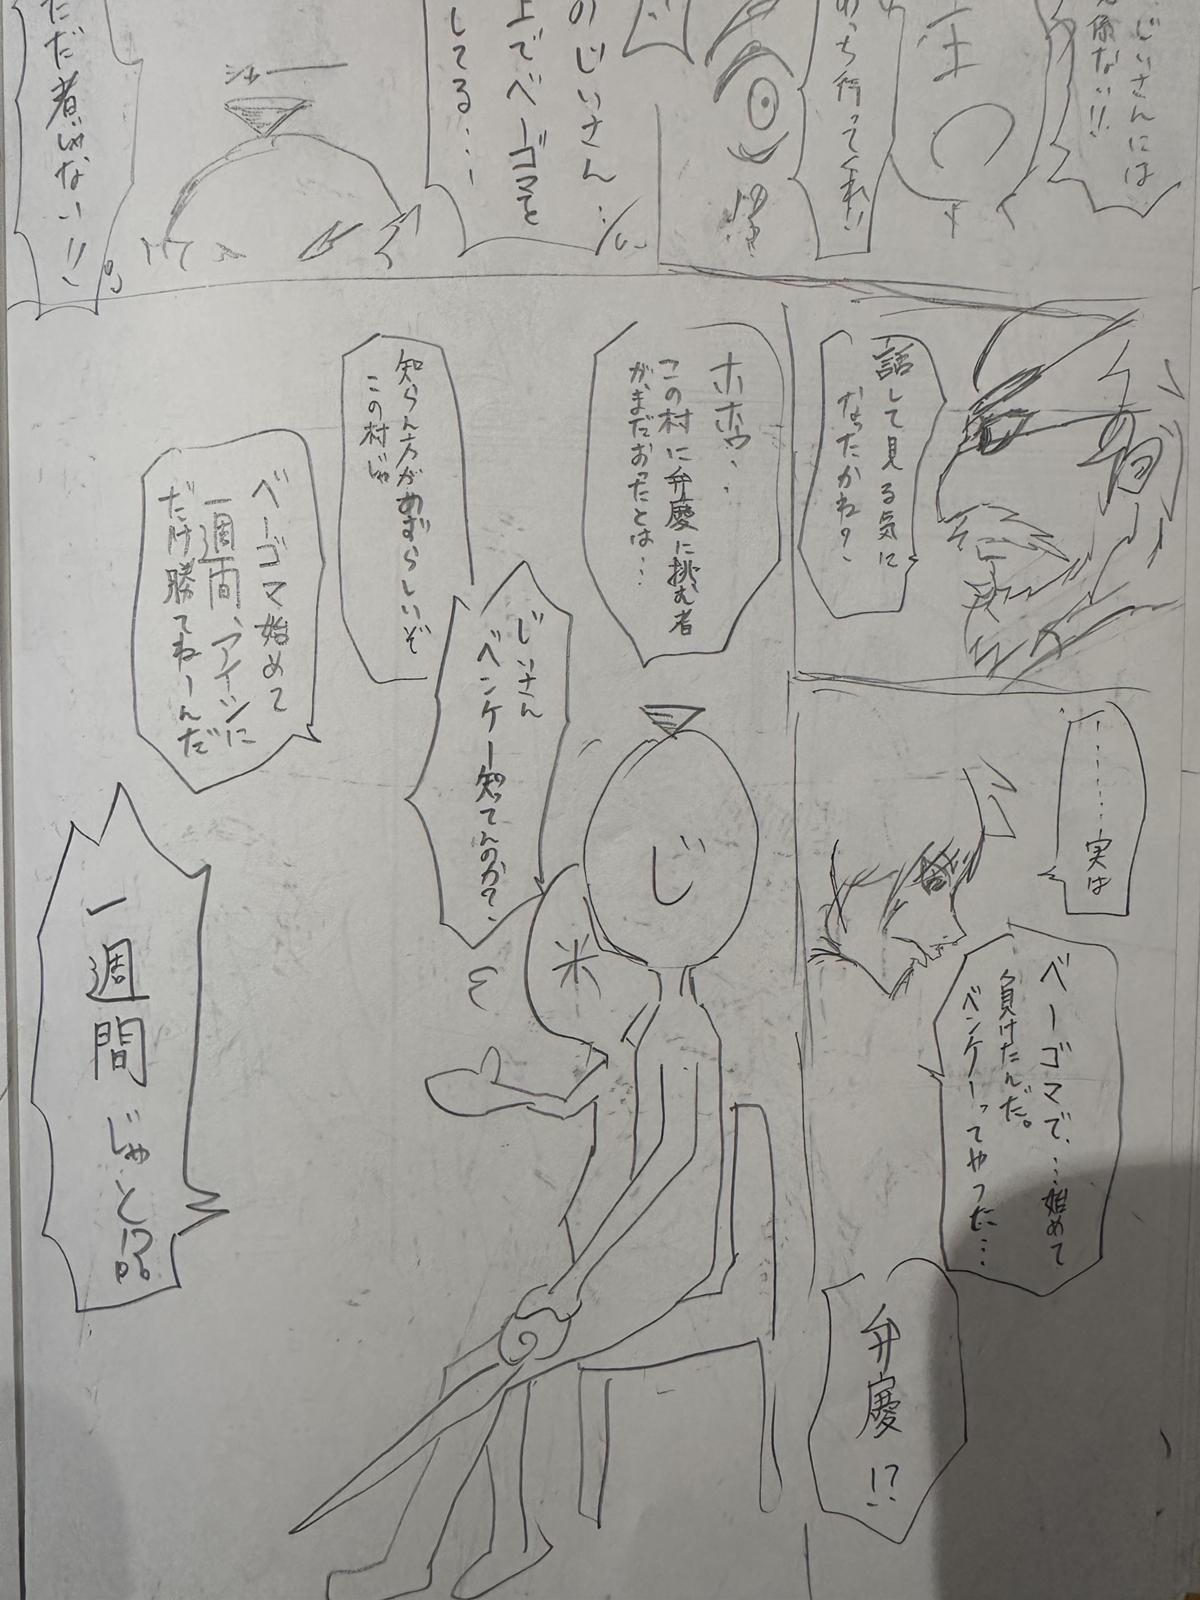 じいさんには
係ない!!
主
あっち行ってくれ!!
のじいさん…
上でベーゴマを
してる…
シャー
ただ者じゃない!!
話して見る気に
なったかね?
………実は
ベーゴマで、…始めて
負けたんだ。
ベンケーってやつに…
弁慶!?
ホホウ、
この村に弁慶に挑む者
がまだおったとは…
じいさん
ベンケー知ってんのか?
じ
米
知らん方がめずらしいぞ
この村じゃ
ベーゴマ始めて
一週間、アイツに
だけ勝てねーんだ
一週間
じゃと!?